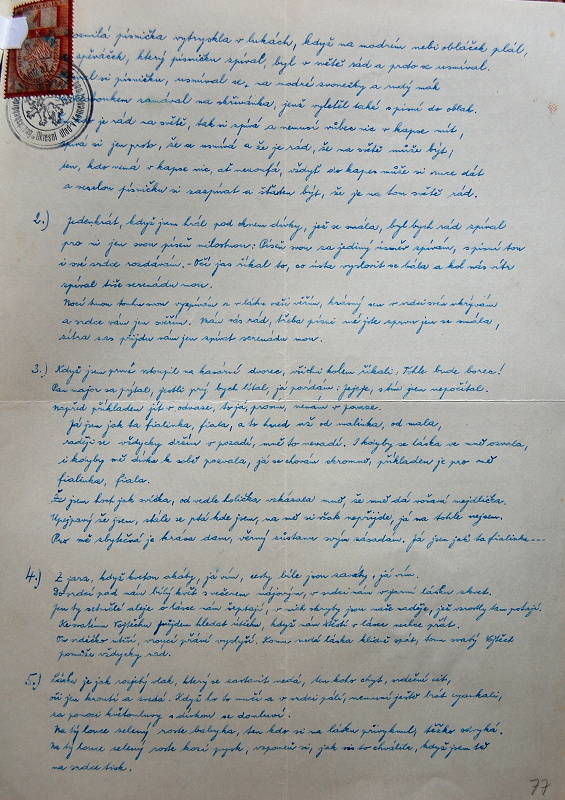 písnička vytryskla v lukách, když na modrém nebi obláček plál,
zpěváček, který písničku zpíval, byl v světě rád a proto se usmíval.
si písničku, usmíval se, na modré zvonečky a rudý mák
na skřivánka, jenž vyletěl také s písní do oblak.
je rád na světě, tak si zpívá a nemusí vůbec nic v kapse mít,
zpívá si jen proto, že se usmívá a že je rád, že na světě může být,
ten, kdo nemá v kapse nic, ať nezoufá, vždyť do kapes může si ruce dát
a veselou písničku si zazpívat a šťasten být, že je na tom světě rád.
2.) Jedenkrát, když jsem hrál pod oknem dívky, jež se smála, byl bych rád zpíval
pro ni jen svou píseň milostnou: Píseň svou za jediný úsměv zpívám, s písní tou
i své srdce rozdávám. - Očí jas říkal to, co ústa vyslovit se bála a kol nás vítr
zpíval tiše serenádu mou.
Nocí tmou touhu svou vyzpívám a v lásku vaši věřím, krásný sen v srdci svém ukrývám
a srdce vám jen svěřím. Mám vás rád, třeba písni mé jste zprvu jen se smála,
zítra zas přijdu vám jen zpívat serenádu mou.
3.) Když jsem prvně vstoupil na kasární dvorec, všichni kolem říkali: Tohle bude borec!
Pan major se pýtal, jestli prý bych lítal, já povídám: jejeje, s tím jsem nepočítal.
Napřed příkladem jít v odvaze, to já, prosím, nemám v povaze.
Já jsem jak ta fialinka, fiala, a to hned už od malinka, od mala,
raději se vždycky držím v pozadí, mně to nevadí. I kdyby se láska ve mně ozvala,
i kdyby mě dívka k sobě pozvala, já se chovám skromně, příkladem je pro mě
fialinka, fiala.
Že jsem hoch jak svíčka, od vedle holička vzkázala mně, že mně dá voňavá mejdlíčka.
Upejpavý že jsem, stále se ptá kde jsem, na mě si však nepřijde, já na tohle nejsem.
Pro mě zbytečná je krása dam, věrný zůstanu svým zásadám. Já jsem jak ta fialinka ---
4.) Z jara, když kvetou akáty, já vím, cesty bílé jsou samoty, já vím.
Do srdcí pád nám bílý květ s večerem májovým, v srdci nám v první lásku zkvet.
Jen ty ztichlé aleje o lásce nám šeptají, v nich skryty jsou naše naděje, jež snad ty tam potají.
Ke svatému Vojtěchu půjdem hledat útěchu, když nám štěstí v lásce nechce přát.
On srdéčko utiší, vroucí přání vyslyší. Komu nedá láska klidně spát, tomu svatý Vojtěch
pomůže vždycky rád.
5.) Láska je jak rozjetý dak, který se zastavit nedá, ten koho chytí, srdéční cit,
oči jen kroutí a zvedá. Když ho to mučí a v srdci pálí, nemusí ještě brát cyankáli,
za pomoci květomluvy s dívkou se domluví.
Na tý louce zelený roste babyka, ten kdo si na lásku přivyknul, těžko odvyká.
Na tý louce zelený roste kozí pysk, vzpomeň si, jak jsi to chválila, když jsem tě
na srdce tisk.
77